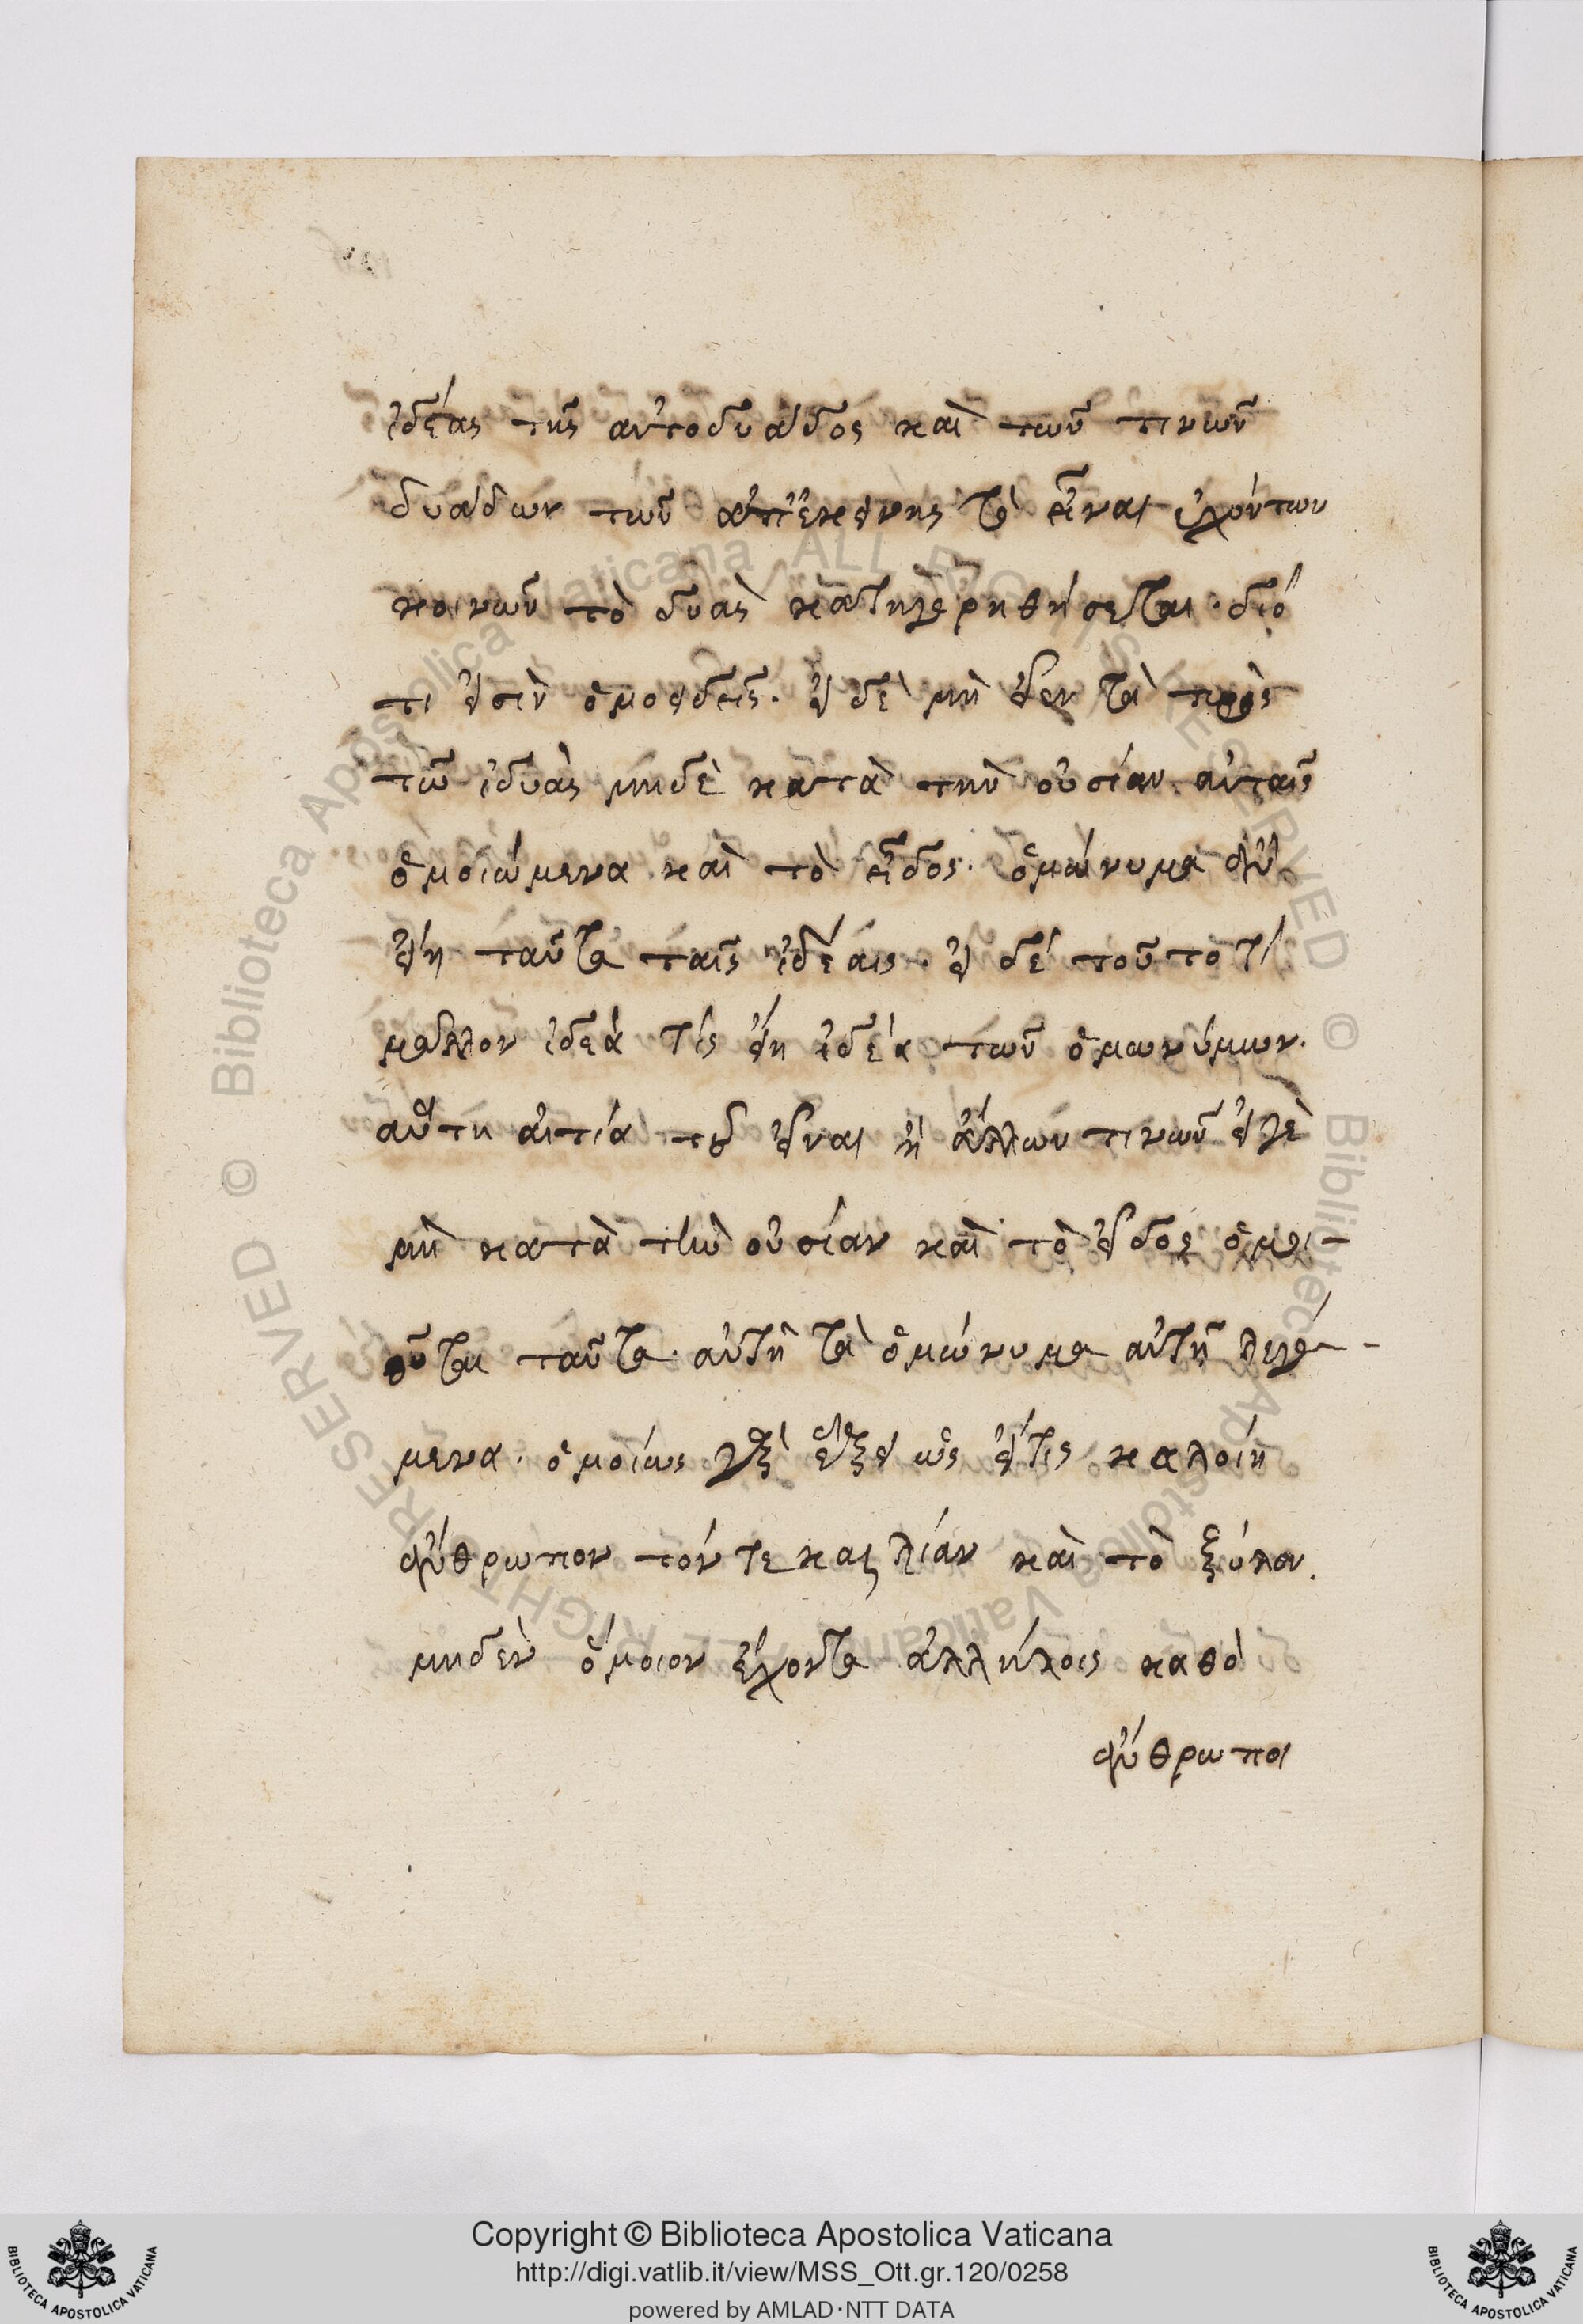 ἰδέας τῆς αὐτοδυάδος καὶ τῶν τινῶν
δυάδων τῶν ἀπ' ἐκείνης τὸ εἶναι ἐχόντων
κοινῶν τὸ δυὰς κατηγορηθήσεται· διό
τι εἰσὶν ὁμοειδεῖς. εἰ δὲ μὴ εἴεν τὰ πρὸς
τῶ ἰδυὰς μηδὲ κατὰ τὴν οὐσίαν αὐταῖς
ὁμοιώμενα καὶ τὸ εἶδος· ὁμώνυμα ἂν
εἴη ταῦτα ταῖς ἰδέαις. εἰ δέ τοῦτο τί
μᾶλλον ἰδέα τίς εἴη ἰδέα τῶν ὁμωνύμων.
αὕτη αἰτία τοῦ εἶναι ἢ ἄλλων τινῶν εἴγε
μὴ κατὰ τὴν οὐσίαν καὶ τὸ εἶδος ὁμοι-
οῦται ταῦτα· αὐτῆ τὰ ὁμώνυμα αὐτῆ λεγό-
μενα. ὁμοίως ὡς εἴ τις καλοίη
ἄνθρωπον τόν τε καλλίαν καὶ τὸ ξύλον.
μηδὲν ὅμοιον ἔχοντα ἀλλήλοις καθὸ
ἄνθρωποι
Copyright © Biblioteca Apostolica Vaticana
http://digi.vatlib.it/view/MSS_Ott.gr.120/0258
powered by AMLAD·NTT DATA